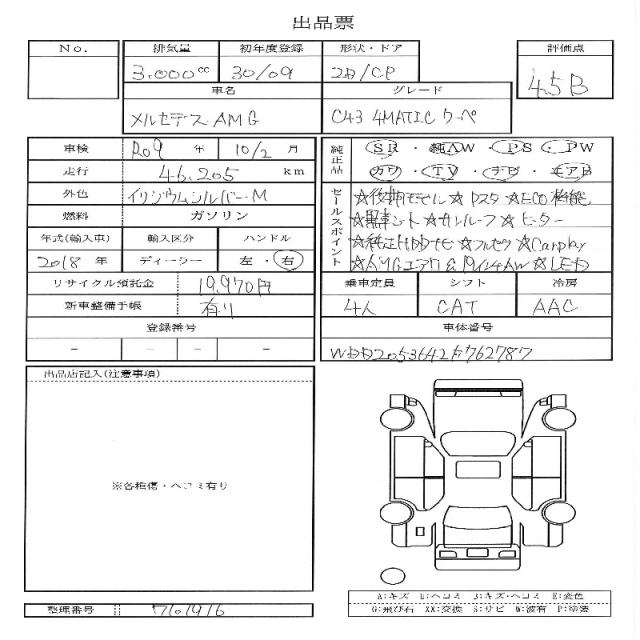 出品票
No. 排気量 初年度登録 形状・ドア 評価点
3.000cc 30/09 2D/CP 4.5B
車名 グレード
メルセデス AMG C43 4MATIC クーペ
車検 R09 年 10/2 月
走行 46,205 km
外色 イリジウムシルバーM
燃料 ガソリン
年式(輸入車) 輸入区分 ハンドル
2018 年 ディーラー 左・右
リサイクル預託金 19,970円
新車整備手帳 有り
登録番号
－ － － －
純正品 SR・純AW・PS・PW
カワ・TV・ナビ・エアB
セールスポイント
★後期モデル★Dスタ★ECO機能
★黒革シート★サンルーフ★ヒーター
★純正HDDナビ★フルセグ★Carplay
★AMGエアロ&19インチAW★LED
乗車定員 シフト 冷房
4人 CAT AAC
車体番号
出品店記入(注意事項)
※各種傷・ヘコミ有り
A:キズ U:ヘコミ B:キズ・ヘコミ E:変色
G:飛び石 XX:交換 S:サビ W:波有 P:塗装
整理番号 761916